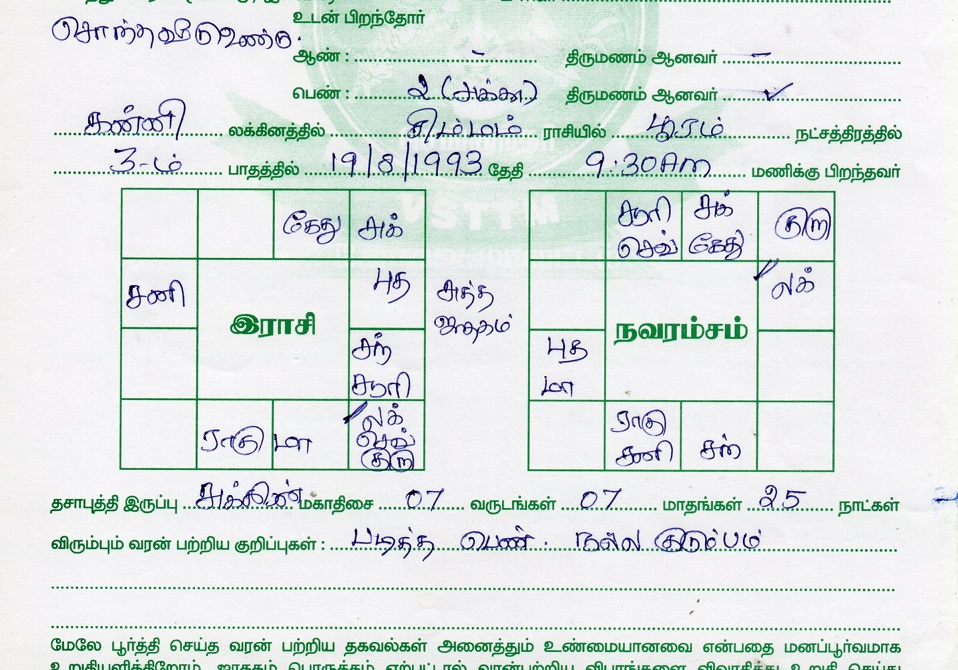 சொந்தவீடு உண்டு.
உடன் பிறந்தோர்
ஆண் : - திருமணம் ஆனவர் -
பெண் : 2 (அக்கா) திருமணம் ஆனவர் ✓
கன்னி லக்கினத்தில் சிம்மம் ராசியில் பூரம் நட்சத்திரத்தில்
3-ம் பாதத்தில் 19/8/1993 தேதி 9:30Am மணிக்கு பிறந்தவர்
VSTTM
கேது சுக்
சூரி சுக் குரு
செவ் கேது
சனி புத சுத்த
ஜாதகம்
லக்
இராசி
நவாம்சம்
சந்
சூரி
புத
மா
ராகு மா லக்
செவ்
குரு
ராகு
சனி சந்
தசாபுத்தி இருப்பு சுக்கிரன் மகாதிசை 07 வருடங்கள் 07 மாதங்கள் 25 நாட்கள்
விரும்பும் வரன் பற்றிய குறிப்புகள் : படித்த பெண். நல்ல குடும்பம்
மேலே பூர்த்தி செய்த வரன் பற்றிய தகவல்கள் அனைத்தும் உண்மையானவை என்பதை மனப்பூர்வமாக